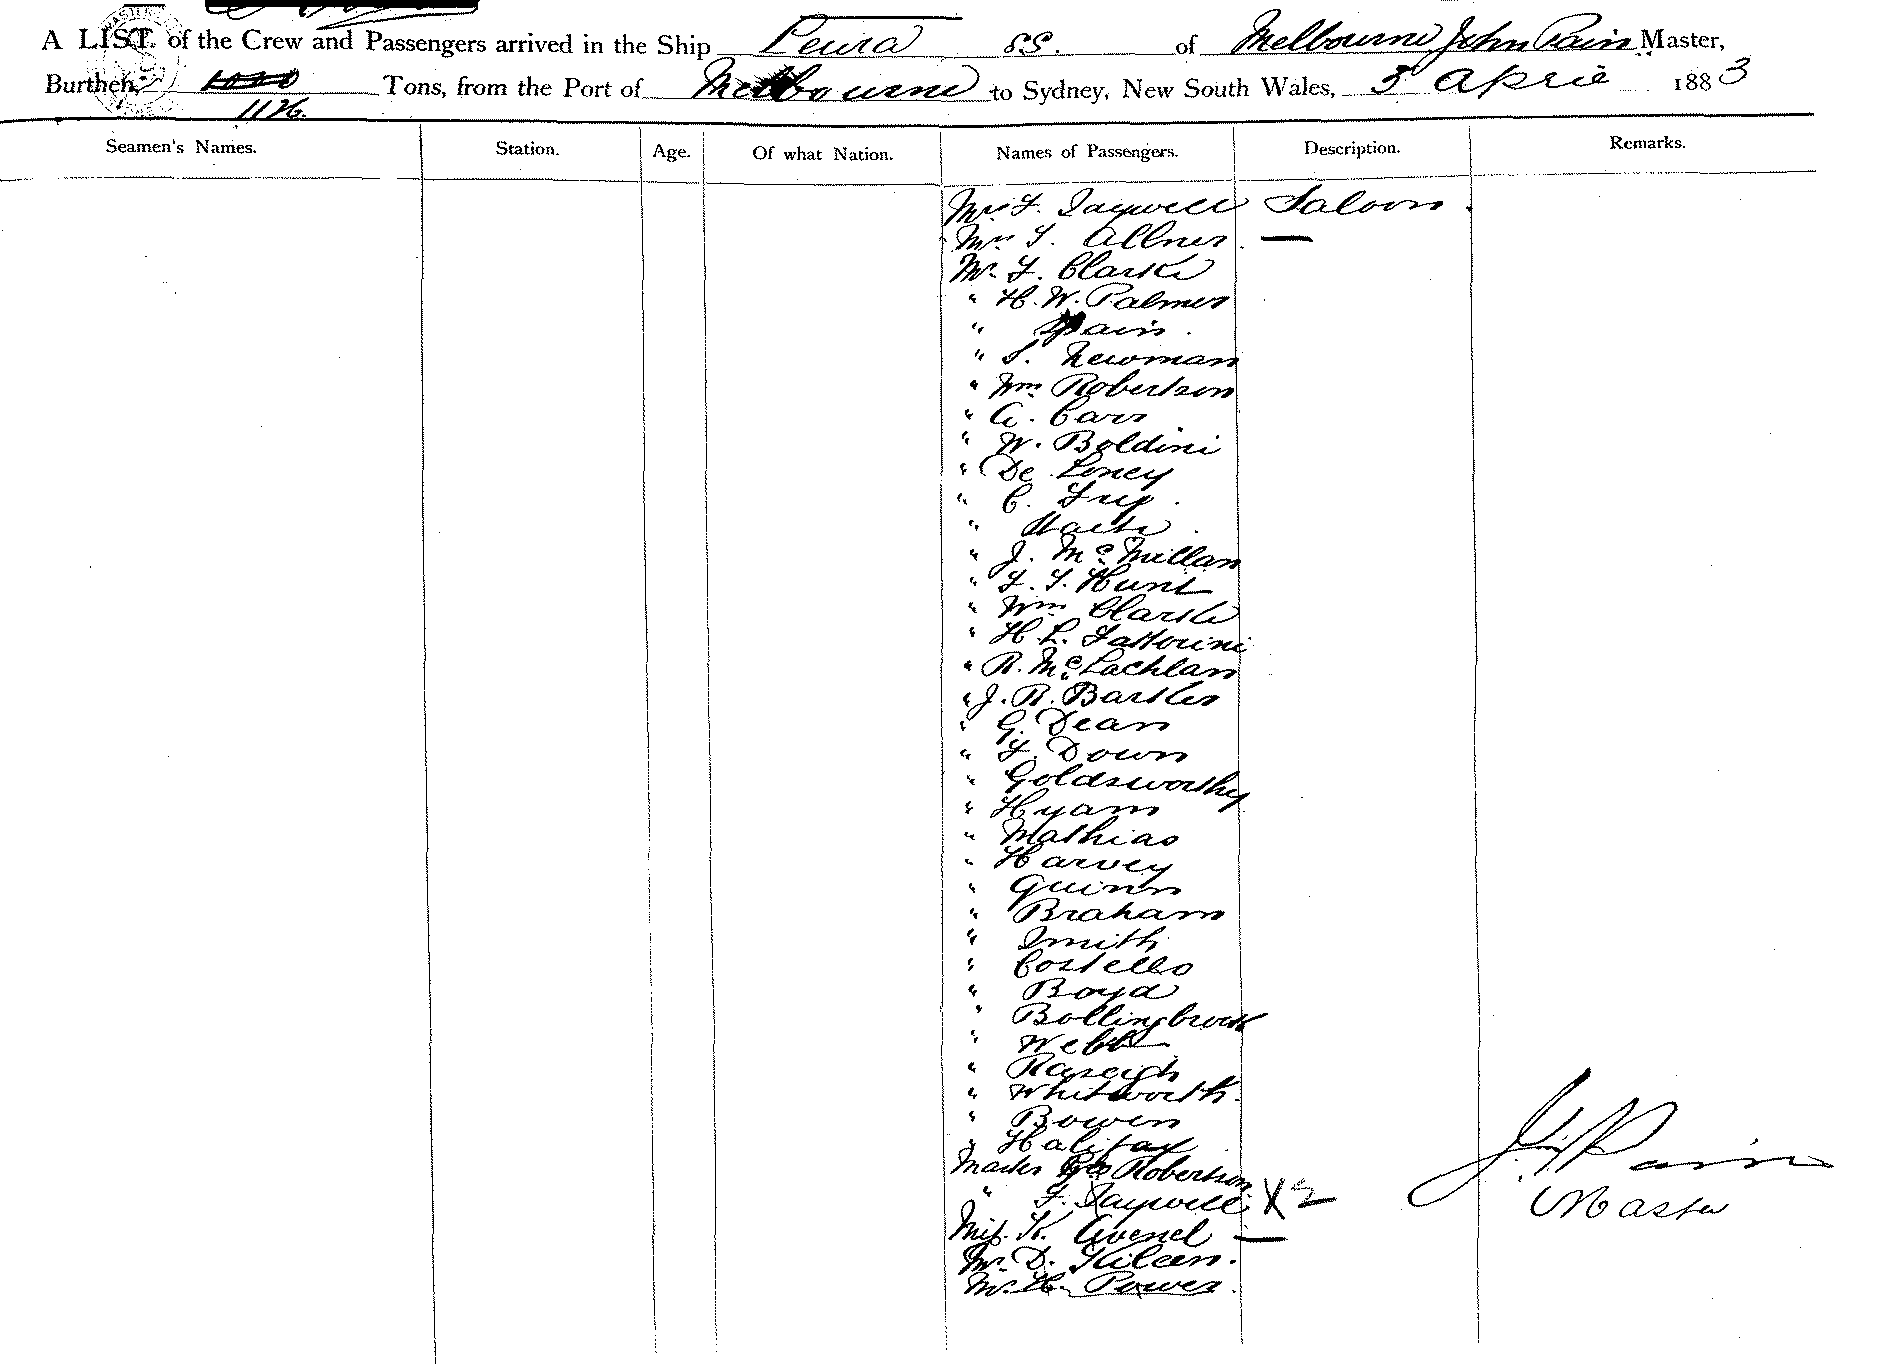 A LIST of the Crew and Passengers arrived in the Ship Leura SS. of Melbourne John Pain Master,
Burthen, 1126 Tons, from the Port of Melbourne to Sydney, New South Wales, 3 April 1883
Seamen's Names. Station. Age. Of what Nation. Names of Passengers. Description. Remarks.
Mrs F. Jaywell Saloon.
Mrs S. Allner
Mr. F. Clarke
" H. W. Palmer
" Pain.
" S. Newman
" Wm Robertson
" A. Carr
" W. Boldini
" De Loney
" C.
"
" J. McMillan
" F. S. Hunt
" Wm Clarke
" H. L. Fattorini
" R. McLachlan
" J. R. Barkler
" G. Dean
" F. Down
" Goldsworthy
" Hyam
" Mathias
" Harvey
" Quinn
" Braham
" Smith
" Costello
" Boyd
" Bollingbrook
" Webb
"
" Whitworth.
" Bowen
" Halifax
Master Robertson
" F. Jaywell X 2
Miss. K. Avenel
Mr. D. Kileen.
Mr. H. Power.
Jno Pain
Master